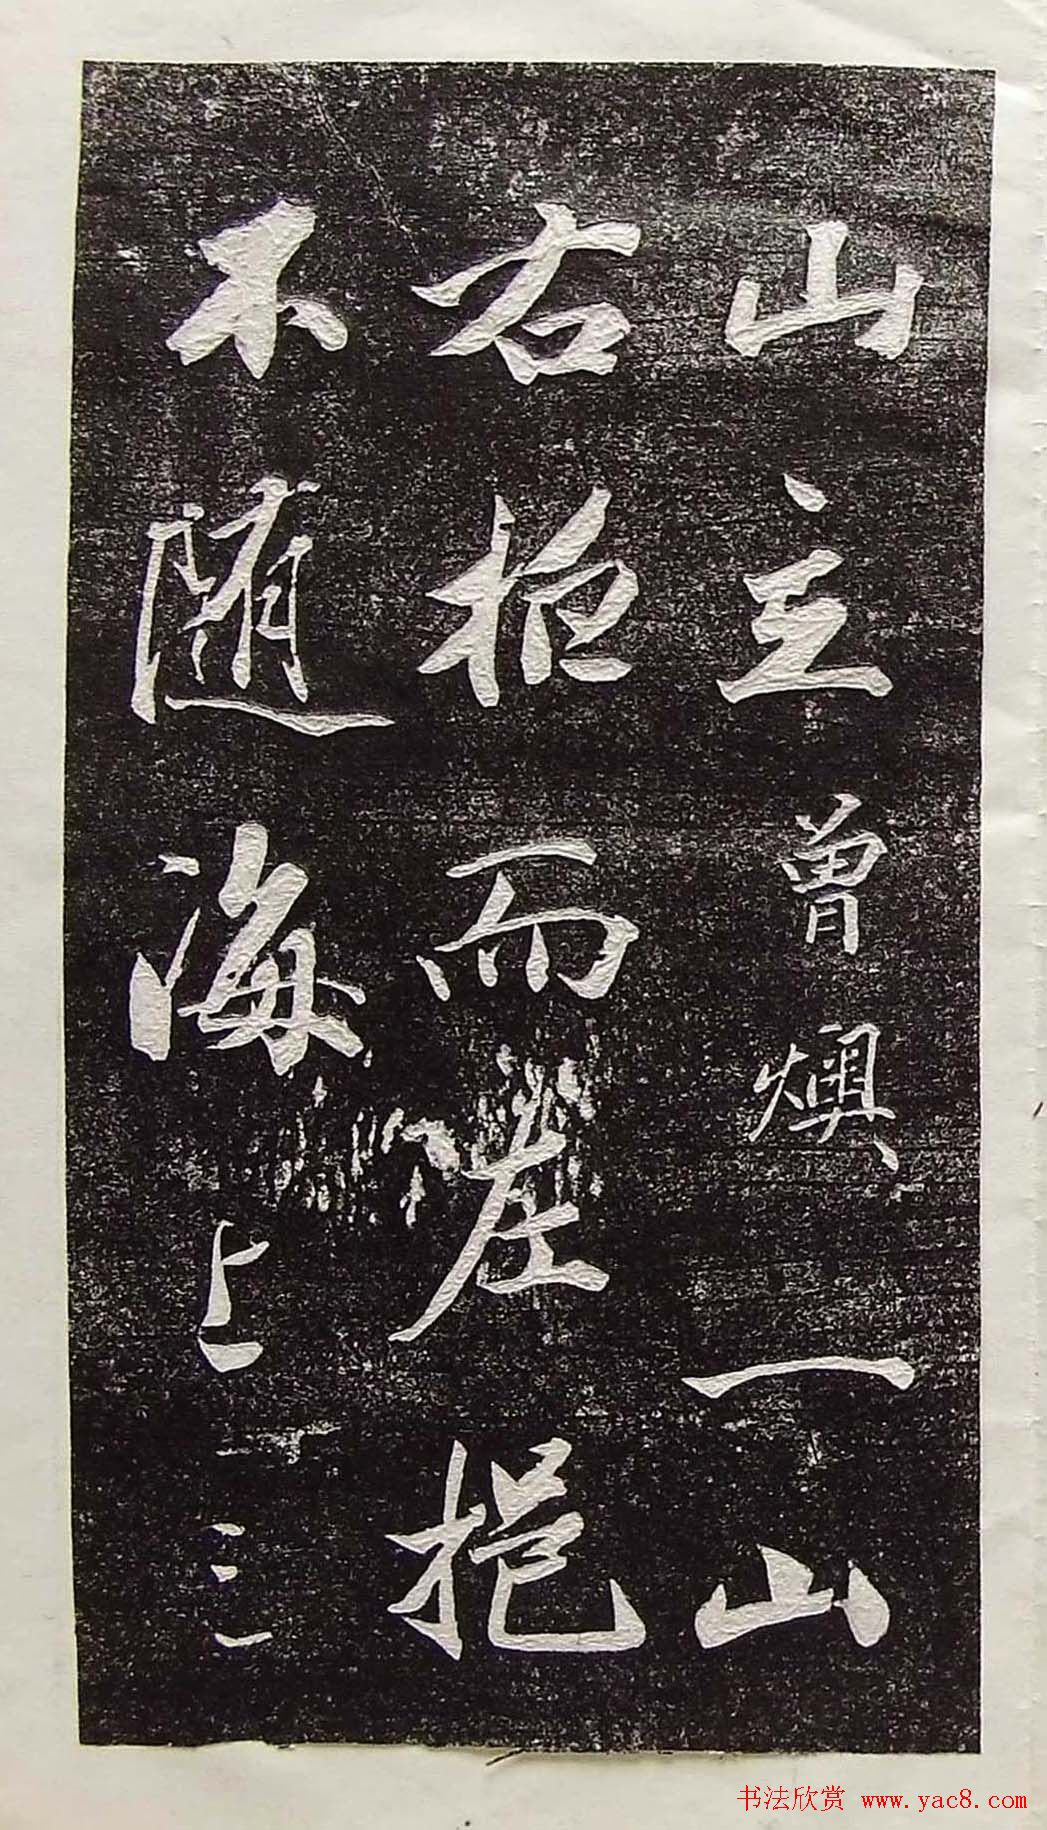 山主曾燠一山
右拒而左挹
不随海上三
书法欣赏 www.yac8.com